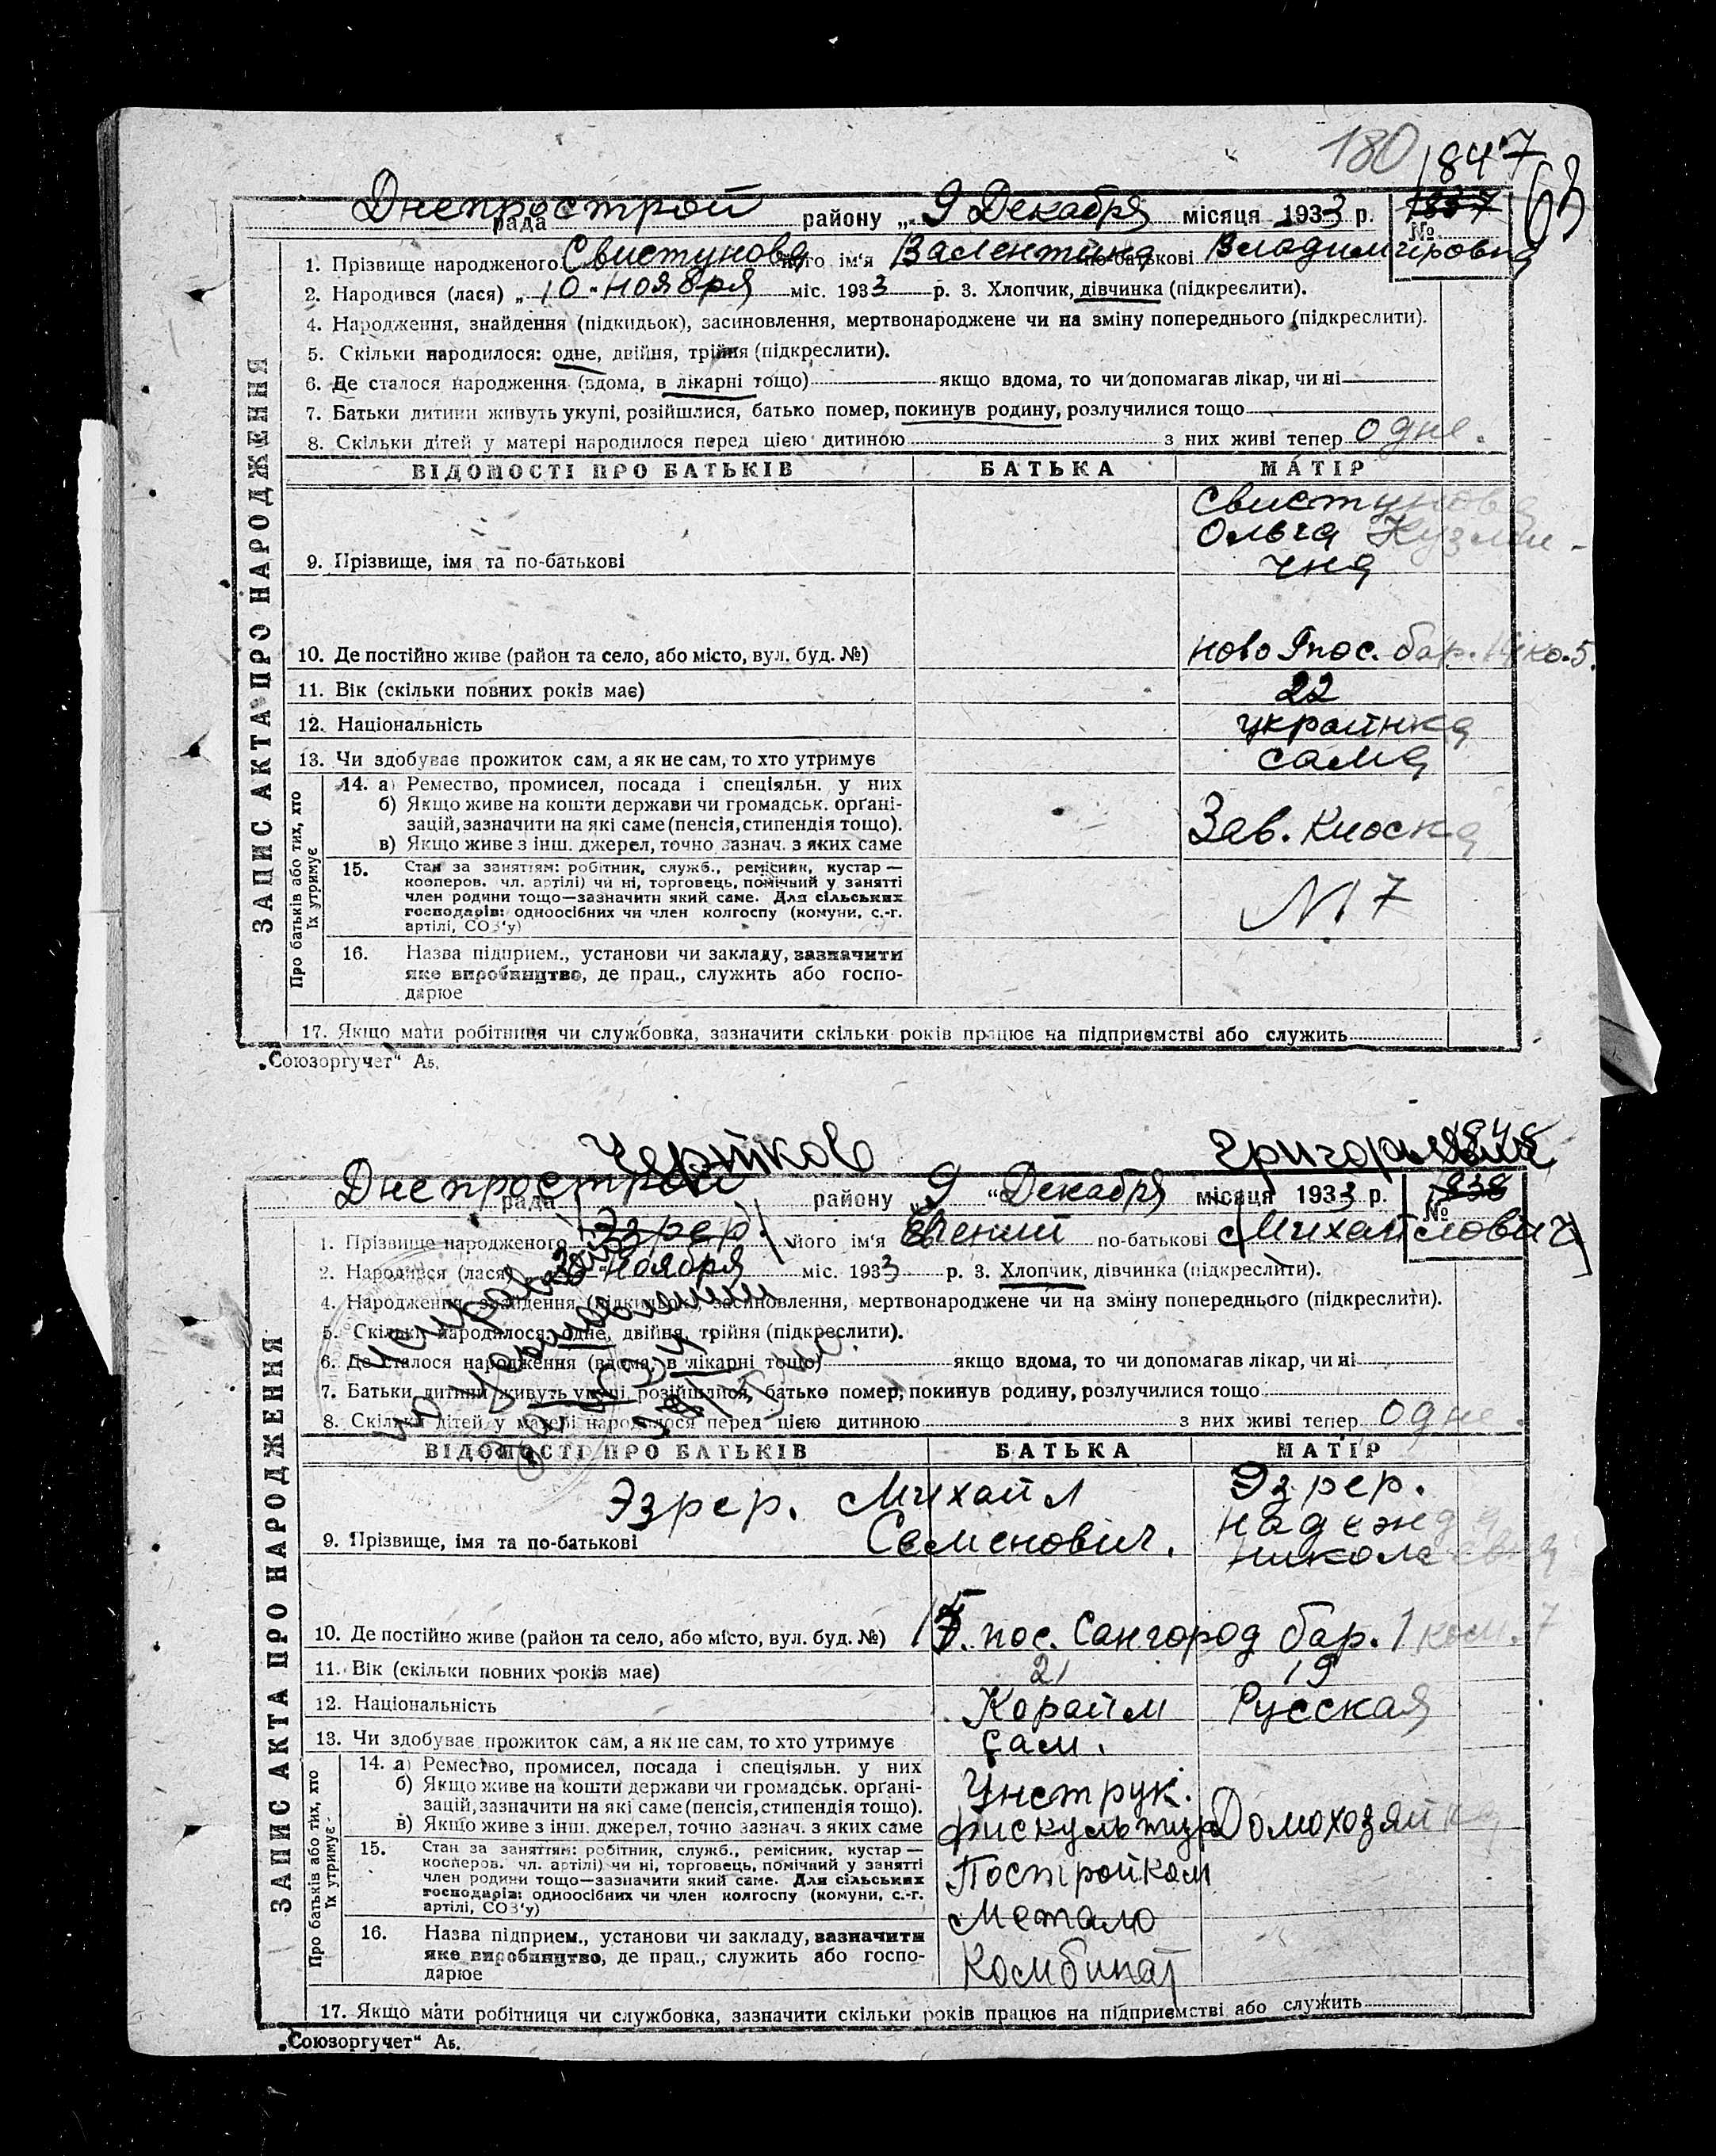 180
1847
63
Днепрострой рада району „ 9 Декабря місяця 1933 р.
1837
№
1. Прізвище народженого Свистунова його ім‘я Валентина по-батькові Владимировна
2. Народився (лася) „ 10 Ноября міс. 1933 р. 3. Хлопчик, дівчинка (підкреслити).
4. Народження, знайдення (підкидьок), засиновлення, мертвонароджене чи на зміну попереднього (підкреслити).
5. Скільки народилося: одне, двійня, трійня (підкреслити).
6. Де сталося народження (вдома, в лікарні тощо) якщо вдома, то чи допомагав лікар, чи ні
7. Батьки дитини живуть укупі, розійшлися, батько помер, покинув родину, розлучилися тощо
8. Скільки дітей у матері народилося перед цією дитиною з них живі тепер Одне.
ЗАПИС АКТА ПРО НАРОДЖЕННЯ
ВІДОМОСТІ ПРО БАТЬКІВ БАТЬКА МАТІР
Свистунова
Ольга Кузьми-
9. Прізвище, імя та по-батькові чна
10. Де постійно живе (район та село, або місто, вул. буд. №) Ново пос. бар.
11. Вік (скільки повних років має) 22
12. Національність украинка
13. Чи здобуває прожиток сам, а як не сам, то хто утримує сама
Про батьків або тих, хто їх утримує
14. а) Ремество, промисел, посада і спеціяльн. у них
б) Якщо живе на кошти держави чи громадськ. орґані-
зацій, зазначити на які саме (пенсія, стипендія тощо). Зав. Киоска
в) Якщо живе з інш. джерел, точно зазнач. з яких саме
15. Стан за заняттям: робітник, служб., ремісник, кустар —
кооперов. чл. артілі) чи ні, торговець, помічний у занятті
член родини тощо—зазначити який саме. Для сільських
господарів: одноосібних чи член колгоспу (комуни, с.-г.
артілі, СОЗ‘у)
№ 7
16. Назва підприєм., установи чи закладу, зазначити
яке виробництво, де прац., служить або госпо-
дарює
17. Якщо мати робітниця чи службовка, зазначити скільки років працює на підприємстві або служить
„Союзоргучет“ Аб.
Чертков Григорьевич
Днепрострой рада району „ 9 “ Декабря місяця 1933 р.
1838
№
1. Прізвище народженого Эзрер. його ім‘я Евгений по-батькові Михайлович
2. Народився (лася) Ноября міс. 1933 р. 3. Хлопчик, дівчинка (підкреслити).
4. Народження, знайдення (підкидьок), засиновлення, мертвонароджене чи на зміну попереднього (підкреслити).
5. Скільки народилося: одне, двійня, трійня (підкреслити).
6. Де сталося народження (вдома, в лікарні тощо) якщо вдома, то чи допомагав лікар, чи ні
7. Батьки дитини живуть укупі, розійшлися, батько помер, покинув родину, розлучилися тощо
8. Скільки дітей у матері народилося перед цією дитиною з них живі тепер Одне.
ЗАПИС АКТА ПРО НАРОДЖЕННЯ
ВІДОМОСТІ ПРО БАТЬКІВ БАТЬКА МАТІР
Эзрер. Михайл Эзрер.
Надежда
9. Прізвище, імя та по-батькові Семенович. Николаевна
10. Де постійно живе (район та село, або місто, вул. буд. №) пос. Сангород бар. 1 ком. 7
11. Вік (скільки повних років має) 21 19
12. Національність Кораим Русская
13. Чи здобуває прожиток сам, а як не сам, то хто утримує Сам.
Про батьків або тих, хто їх утримує
14. а) Ремество, промисел, посада і спеціяльн. у них
б) Якщо живе на кошти держави чи громадськ. орґані- Инструк.
зацій, зазначити на які саме (пенсія, стипендія тощо).
в) Якщо живе з інш. джерел, точно зазнач. з яких саме фискультур Домохозяйка
15. Стан за заняттям: робітник, служб., ремісник, кустар —
кооперов. чл. артілі) чи ні, торговець, помічний у занятті
член родини тощо—зазначити який саме. Для сільських
господарів: одноосібних чи член колгоспу (комуни, с.-г.
артілі, СОЗ‘у)
Постройком
Метало
16. Назва підприєм., установи чи закладу, зазначити
яке виробництво, де прац., служить або госпо-
дарює
Комбинат
17. Якщо мати робітниця чи службовка, зазначити скільки років працює на підприємстві або служить
„Союзоргучет“ Аб.